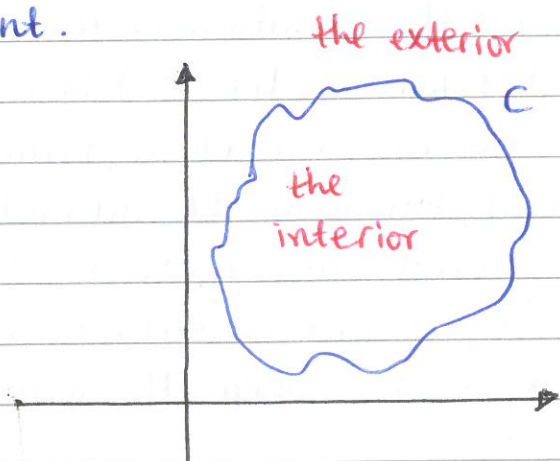 nt.
the exterior
C
the
interior